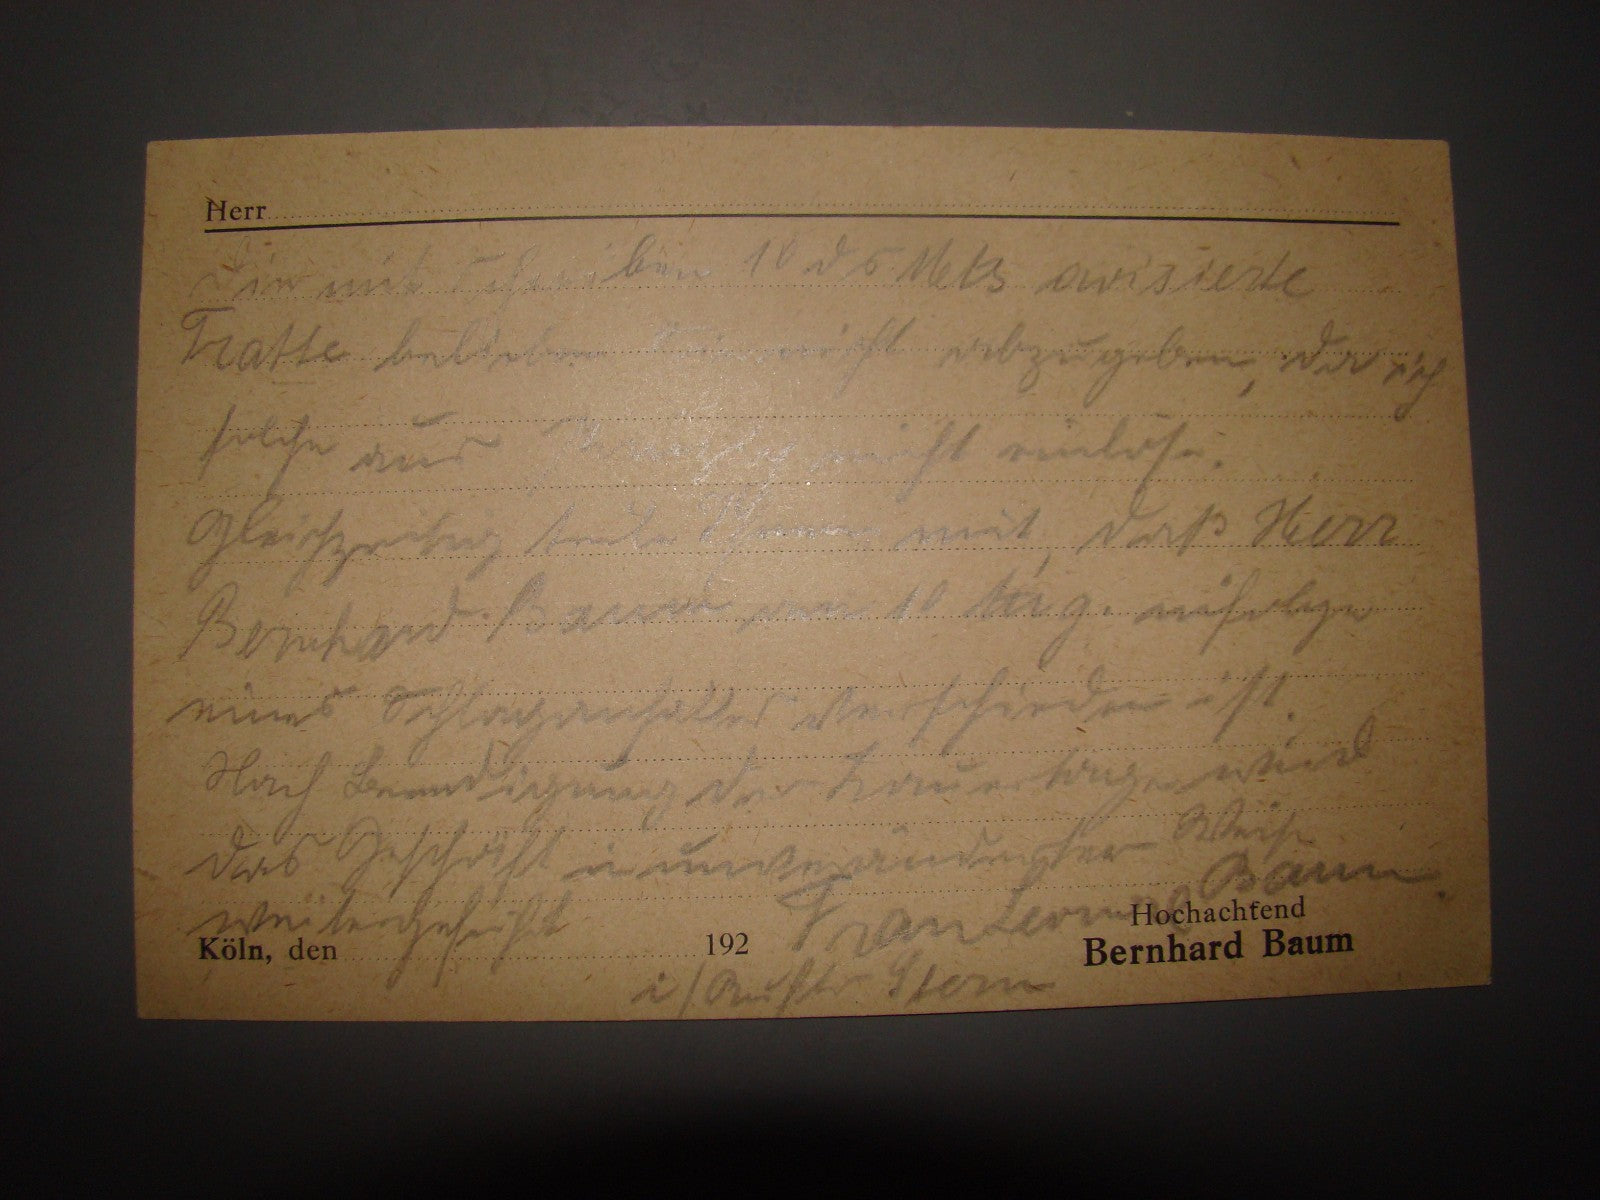 Herr
Die mit Schreiben 10 ds Mts avisierte
Tratte belieben Sie nicht abzugeben, da ich
solche aus nicht einlöse.
Gleichzeitig teile Ihnen mit, daß Herr
Bernhard Baum am 10 Aug. infolge
eines Schlaganfalles verschieden ist.
Nach Beendigung der Trauertage wird
das Geschäft in unveränderter Weise
weitergeführt
Frau Baum.
Hochachtend
Köln, den 192 Bernhard Baum
i/Auftr Stern